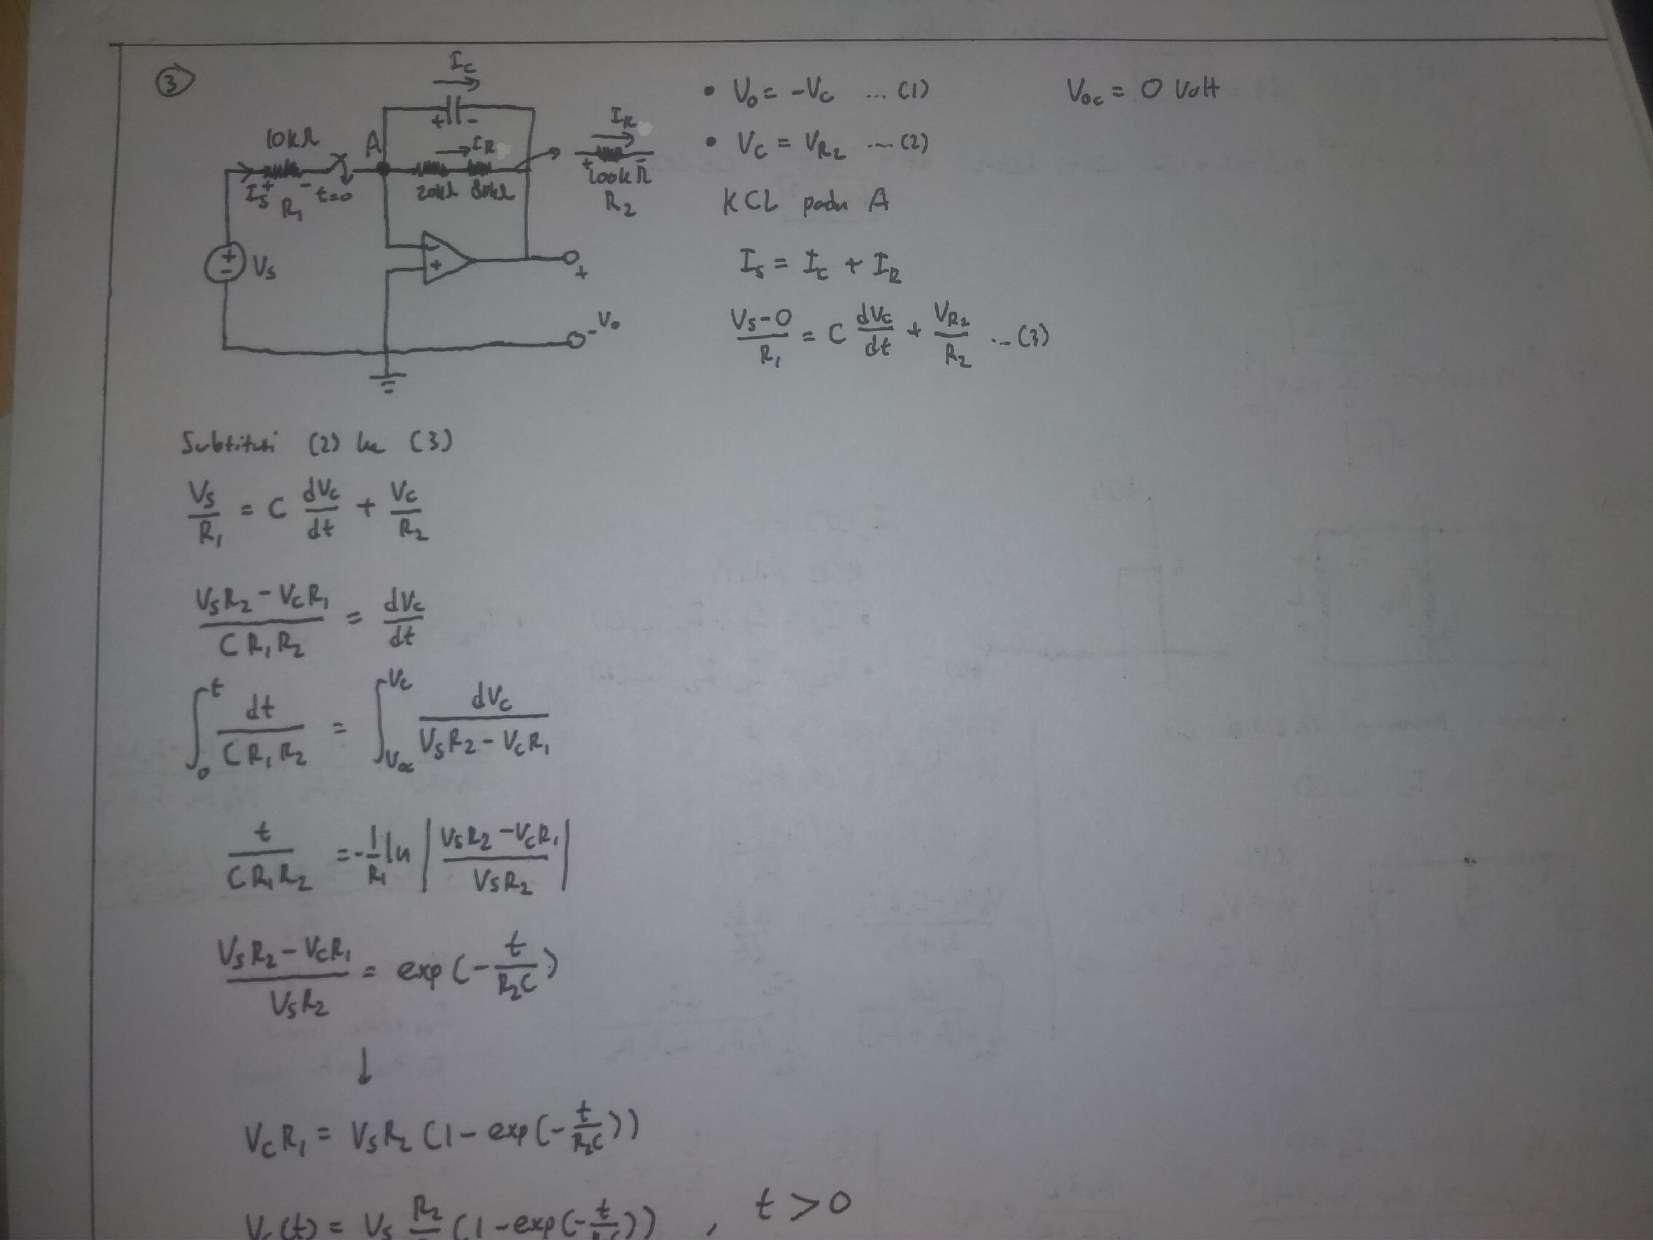 3
I_C
+ -
10kΩ
A
I_R
20kΩ 80kΩ
I_S + R_1 - t=0
I_R
+ 100kΩ -
R_2
+ - V_S
-
+
+
- V_o
• V_o = -V_C ... (1)
V_oc = 0 Volt
• V_C = V_R2 ... (2)
KCL pada A
I_S = I_C + I_R
(V_S - 0)/R_1 = C dV_C/dt + V_R2/R_2 ... (3)
Subtitusi (2) ke (3)
V_S/R_1 = C dV_C/dt + V_C/R_2
(V_S R_2 - V_C R_1)/(C R_1 R_2) = dV_C/dt
∫_0^t dt/(C R_1 R_2) = ∫_Voc^Vc dV_C/(V_S R_2 - V_C R_1)
t/(C R_1 R_2) = -1/R_1 ln |(V_S R_2 - V_C R_1)/(V_S R_2)|
(V_S R_2 - V_C R_1)/(V_S R_2) = exp(-t/(R_2 C))
↓
V_C R_1 = V_S R_2 (1 - exp(-t/(R_2 C)))
V_C(t) = V_S R_2 (1 - exp(-t/ )) , t > 0